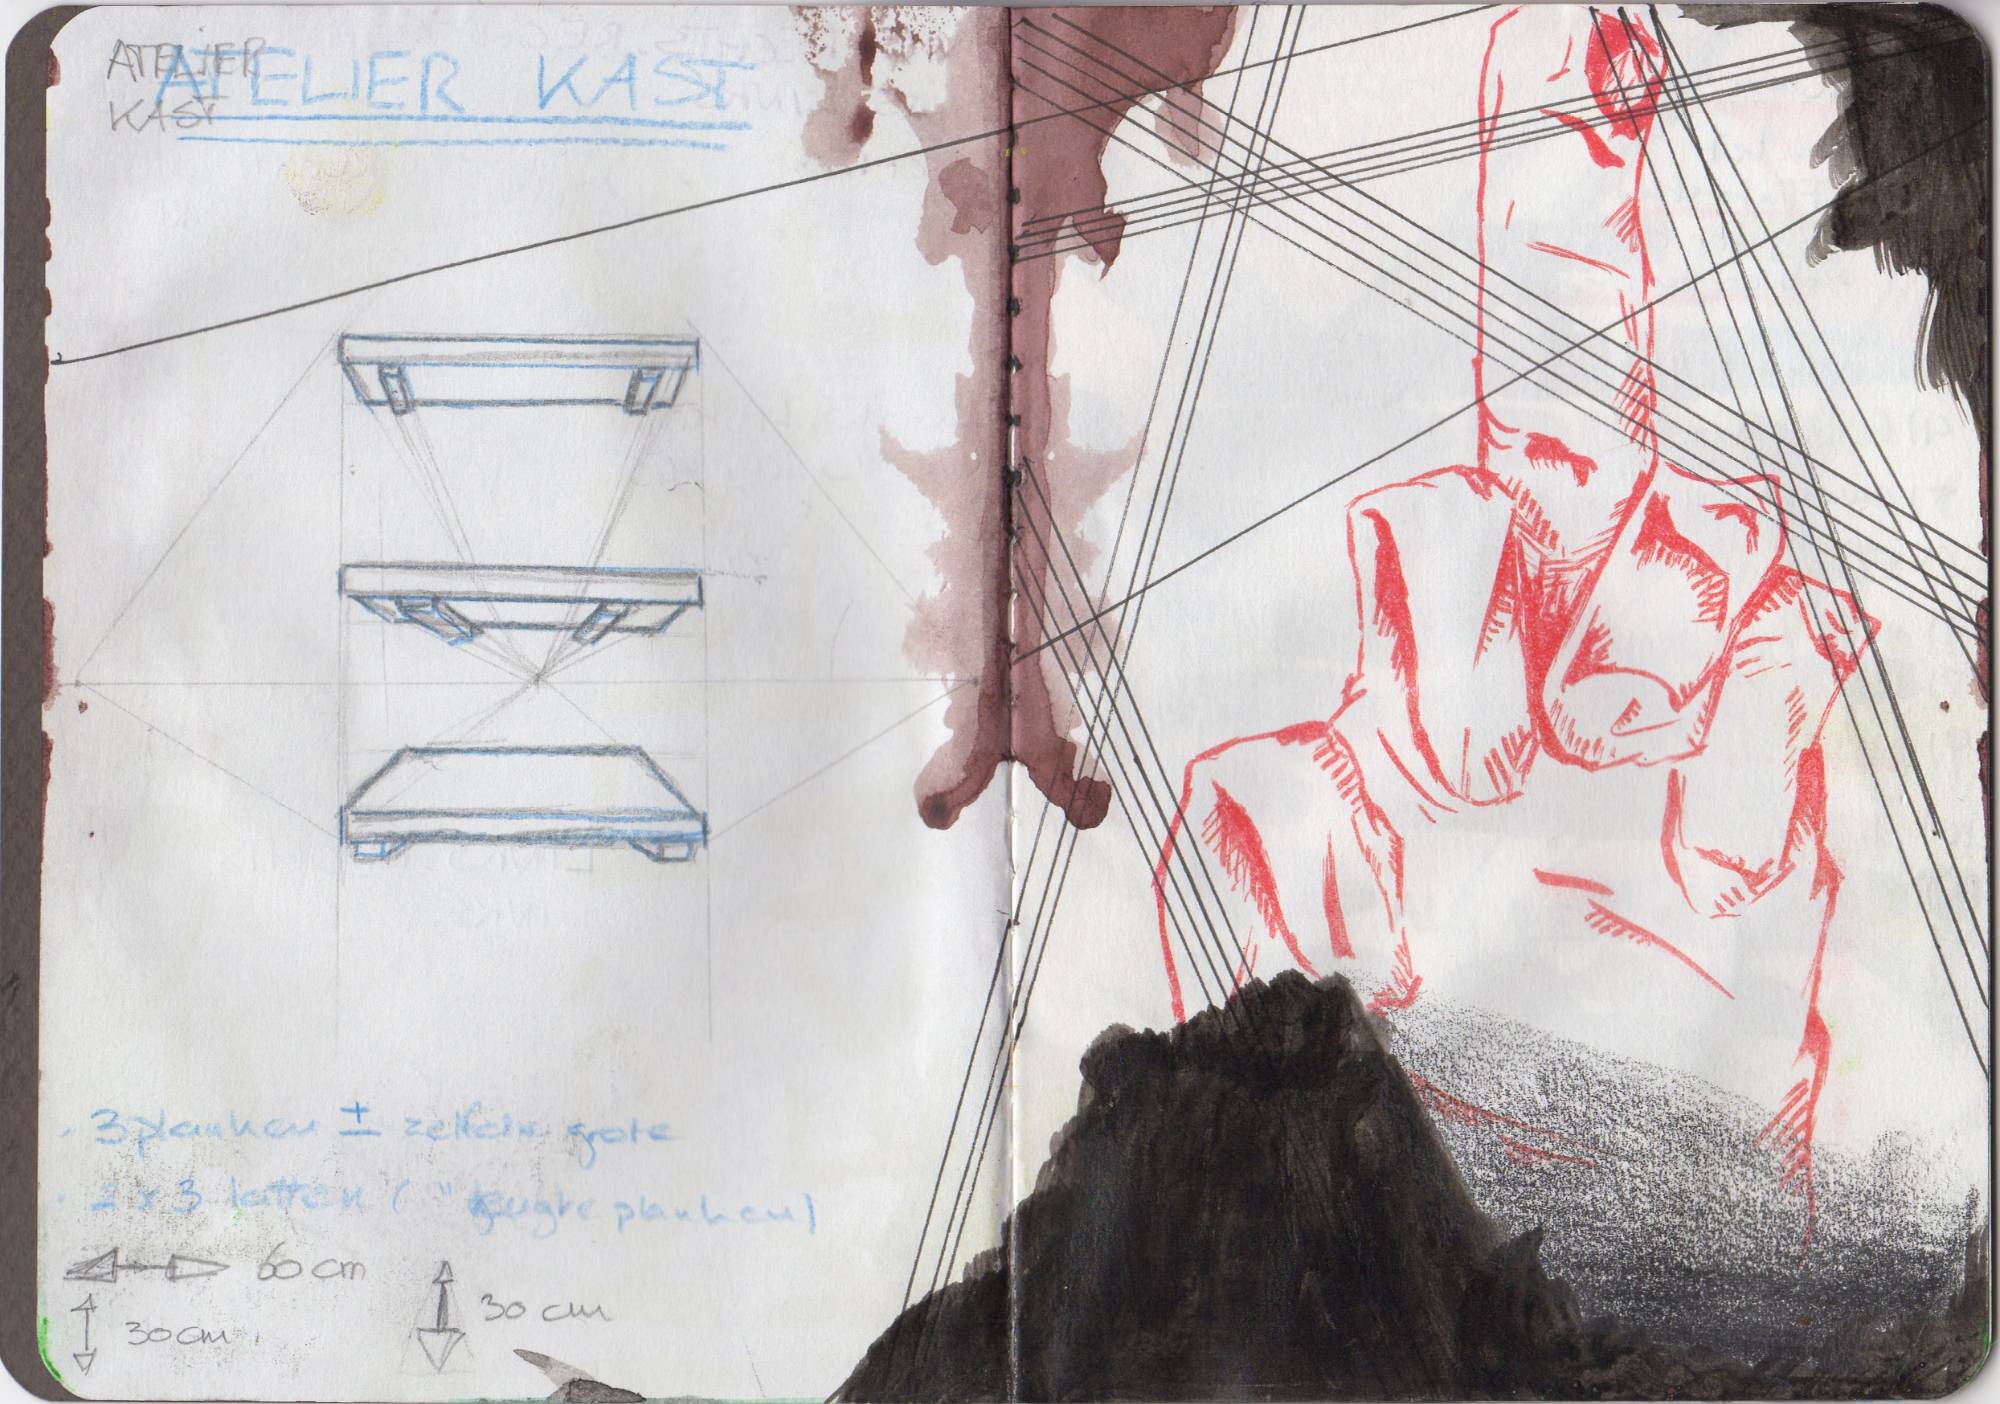 ATELIER KAST
ATELIER
KAST
· 3 planken ± zelfde grote
· 2 x 3 latten ( " lengte planken)
60 cm
30 cm
30 cm